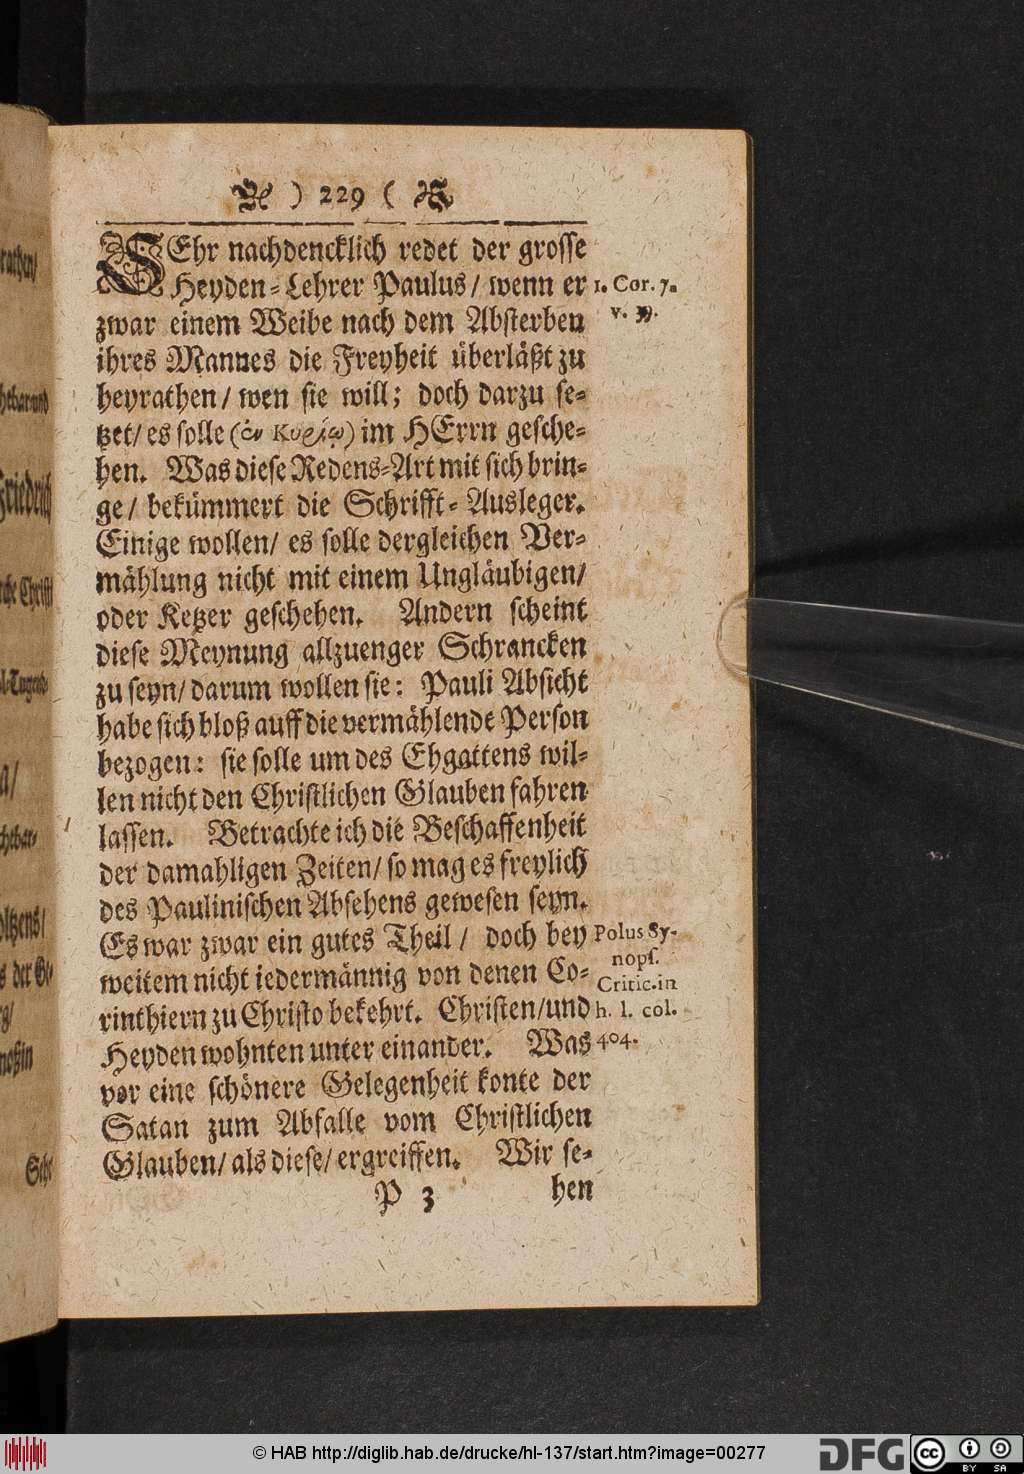 ) 229 (
SEhr nachdencklich redet der grosse
Heyden-Lehrer Paulus/ wenn er
1. Cor. 7.
v. 39.
zwar einem Weibe nach dem Absterben
ihres Mannes die Freyheit überläßt zu
heyrathen/ wen sie will; doch darzu se-
tzet/ es solle (ἐν Κυρίῳ) im HErrn gesche-
hen. Was diese Redens-Art mit sich brin-
ge/ bekümmert die Schrifft-Ausleger.
Einige wollen/ es solle dergleichen Ver-
mählung nicht mit einem Ungläubigen/
oder Ketzer geschehen. Andern scheint
diese Meynung allzuenger Schrancken
zu seyn/ darum wollen sie: Pauli Absicht
habe sich bloß auff die vermählende Person
bezogen: sie solle um des Ehgattens wil-
len nicht den Christlichen Glauben fahren
lassen. Betrachte ich die Beschaffenheit
der damahligen Zeiten/ so mag es freylich
des Paulinischen Absehens gewesen seyn.
Es war zwar ein gutes Theil/ doch bey
weitem nicht iedermännig von denen Co-
rinthiern zu Christo bekehrt. Christen/und
Heyden wohnten unter einander. Was
vor eine schönere Gelegenheit konte der
Satan zum Abfalle vom Christlichen
Glauben/ als diese/ ergreiffen. Wir se-
Polus Sy-
nops.
Critic. in
h. l. col.
404.
P 3
hen
rathen/
hebar und
Friedrich
Christi
l-Tugend-
a/
chebar-
oltzens/
s der Ge-
rg/
noßin
Sehr
© HAB http://diglib.hab.de/drucke/hl-137/start.htm?image=00277
DFG
cc
BY SA